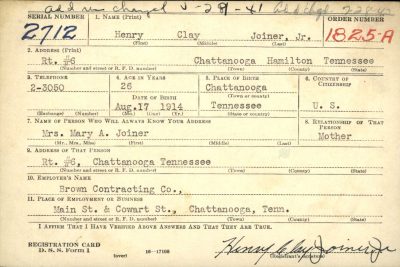 add res changed 5-29-41
SERIAL NUMBER 1. NAME (Print) ORDER NUMBER
2712 Henry Clay Joiner, Jr. 1825-A
(First) (Middle) (Last)
2. ADDRESS (Print)
Rt. #6 Chattanooga Hamilton Tennessee
(Number and street or R. F. D. number) (Town) (County) (State)
3. TELEPHONE 4. AGE IN YEARS 5. PLACE OF BIRTH 6. COUNTRY OF CITIZENSHIP
2-3050 26 Chattanooga
DATE OF BIRTH (Town or county)
Aug.17 1914 Tennessee U. S.
(Exchange) (Number) (Mo.) (Day) (Yr.) (State or country)
7. NAME OF PERSON WHO WILL ALWAYS KNOW YOUR ADDRESS 8. RELATIONSHIP OF THAT PERSON
Mrs. Mary A. Joiner Mother
(Mr., Mrs., Miss) (First) (Middle) (Last)
9. ADDRESS OF THAT PERSON
Rt. #6, Chattanooga Tennessee
(Number and street or R. F. D. number) (Town) (County) (State)
10. EMPLOYER'S NAME
Brown Contracting Co.,
11. PLACE OF EMPLOYMENT OR BUSINESS
Main St. & Cowart St., Chattanooga, Tenn.
(Number and street or R. F. D. number) (Town) (County) (State)
I AFFIRM THAT I HAVE VERIFIED ABOVE ANSWERS AND THAT THEY ARE TRUE.
REGISTRATION CARD
D. S. S. Form 1 (over) 16-17105 Henry Clay Joiner Jr
(Registrant's signature)